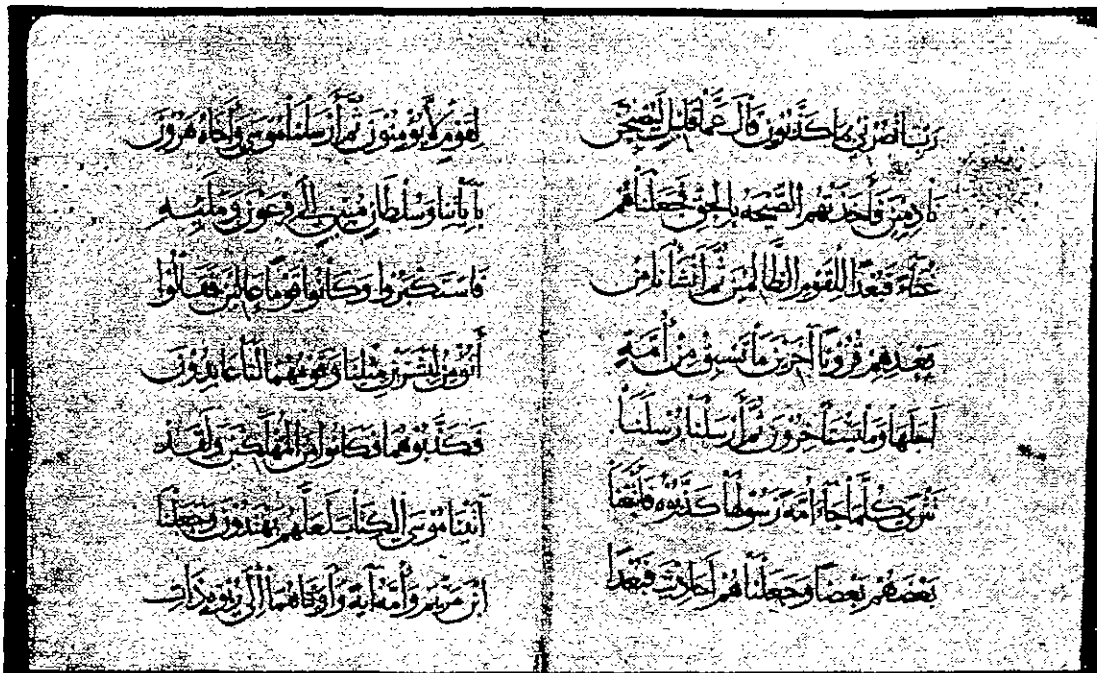 رَبِّ انْصُرْنِي بِمَا كَذَّبُونِ قَالَ عَمَّا قَلِيلٍ لَيُصْبِحُنَّ
نَادِمِينَ فَأَخَذَتْهُمُ الصَّيْحَةُ بِالْحَقِّ فَجَعَلْنَاهُمْ
غُثَآءً فَبُعْدًا لِلْقَوْمِ الظَّالِمِينَ ثُمَّ أَنْشَأْنَا مِنْ
بَعْدِهِمْ قُرُونًا آخَرِينَ مَا تَسْبِقُ مِنْ أُمَّةٍ
أَجَلَهَا وَمَا يَسْتَأْخِرُونَ ثُمَّ أَرْسَلْنَا رُسُلَنَا
تَتْرَى كُلَّمَا جَآءَ أُمَّةً رَسُولُهَا كَذَّبُوهُ فَأَتْبَعْنَا
بَعْضَهُمْ بَعْضًا وَجَعَلْنَاهُمْ أَحَادِيثَ فَبُعْدًا
لِقَوْمٍ لَا يُؤْمِنُونَ ثُمَّ أَرْسَلْنَا مُوسَى وَأَخَاهُ هَرُونَ
بِآيَاتِنَا وَسُلْطَانٍ مُبِينٍ إِلَى فِرْعَوْنَ وَمَلَئِهِ
فَاسْتَكْبَرُوا وَكَانُوا قَوْمًا عَالِينَ فَقَالُوا
أَنُؤْمِنُ لِبَشَرَيْنِ مِثْلِنَا وَقَوْمُهُمَا لَنَا عَابِدُونَ
فَكَذَّبُوهُمَا فَكَانُوا مِنَ الْمُهْلَكِينَ وَلَقَدْ
آتَيْنَا مُوسَى الْكِتَابَ لَعَلَّهُمْ يَهْتَدُونَ وَجَعَلْنَا
ابْنَ مَرْيَمَ وَأُمَّهُ آيَةً وَآوَيْنَاهُمَا إِلَى رَبْوَةٍ ذَاتِ